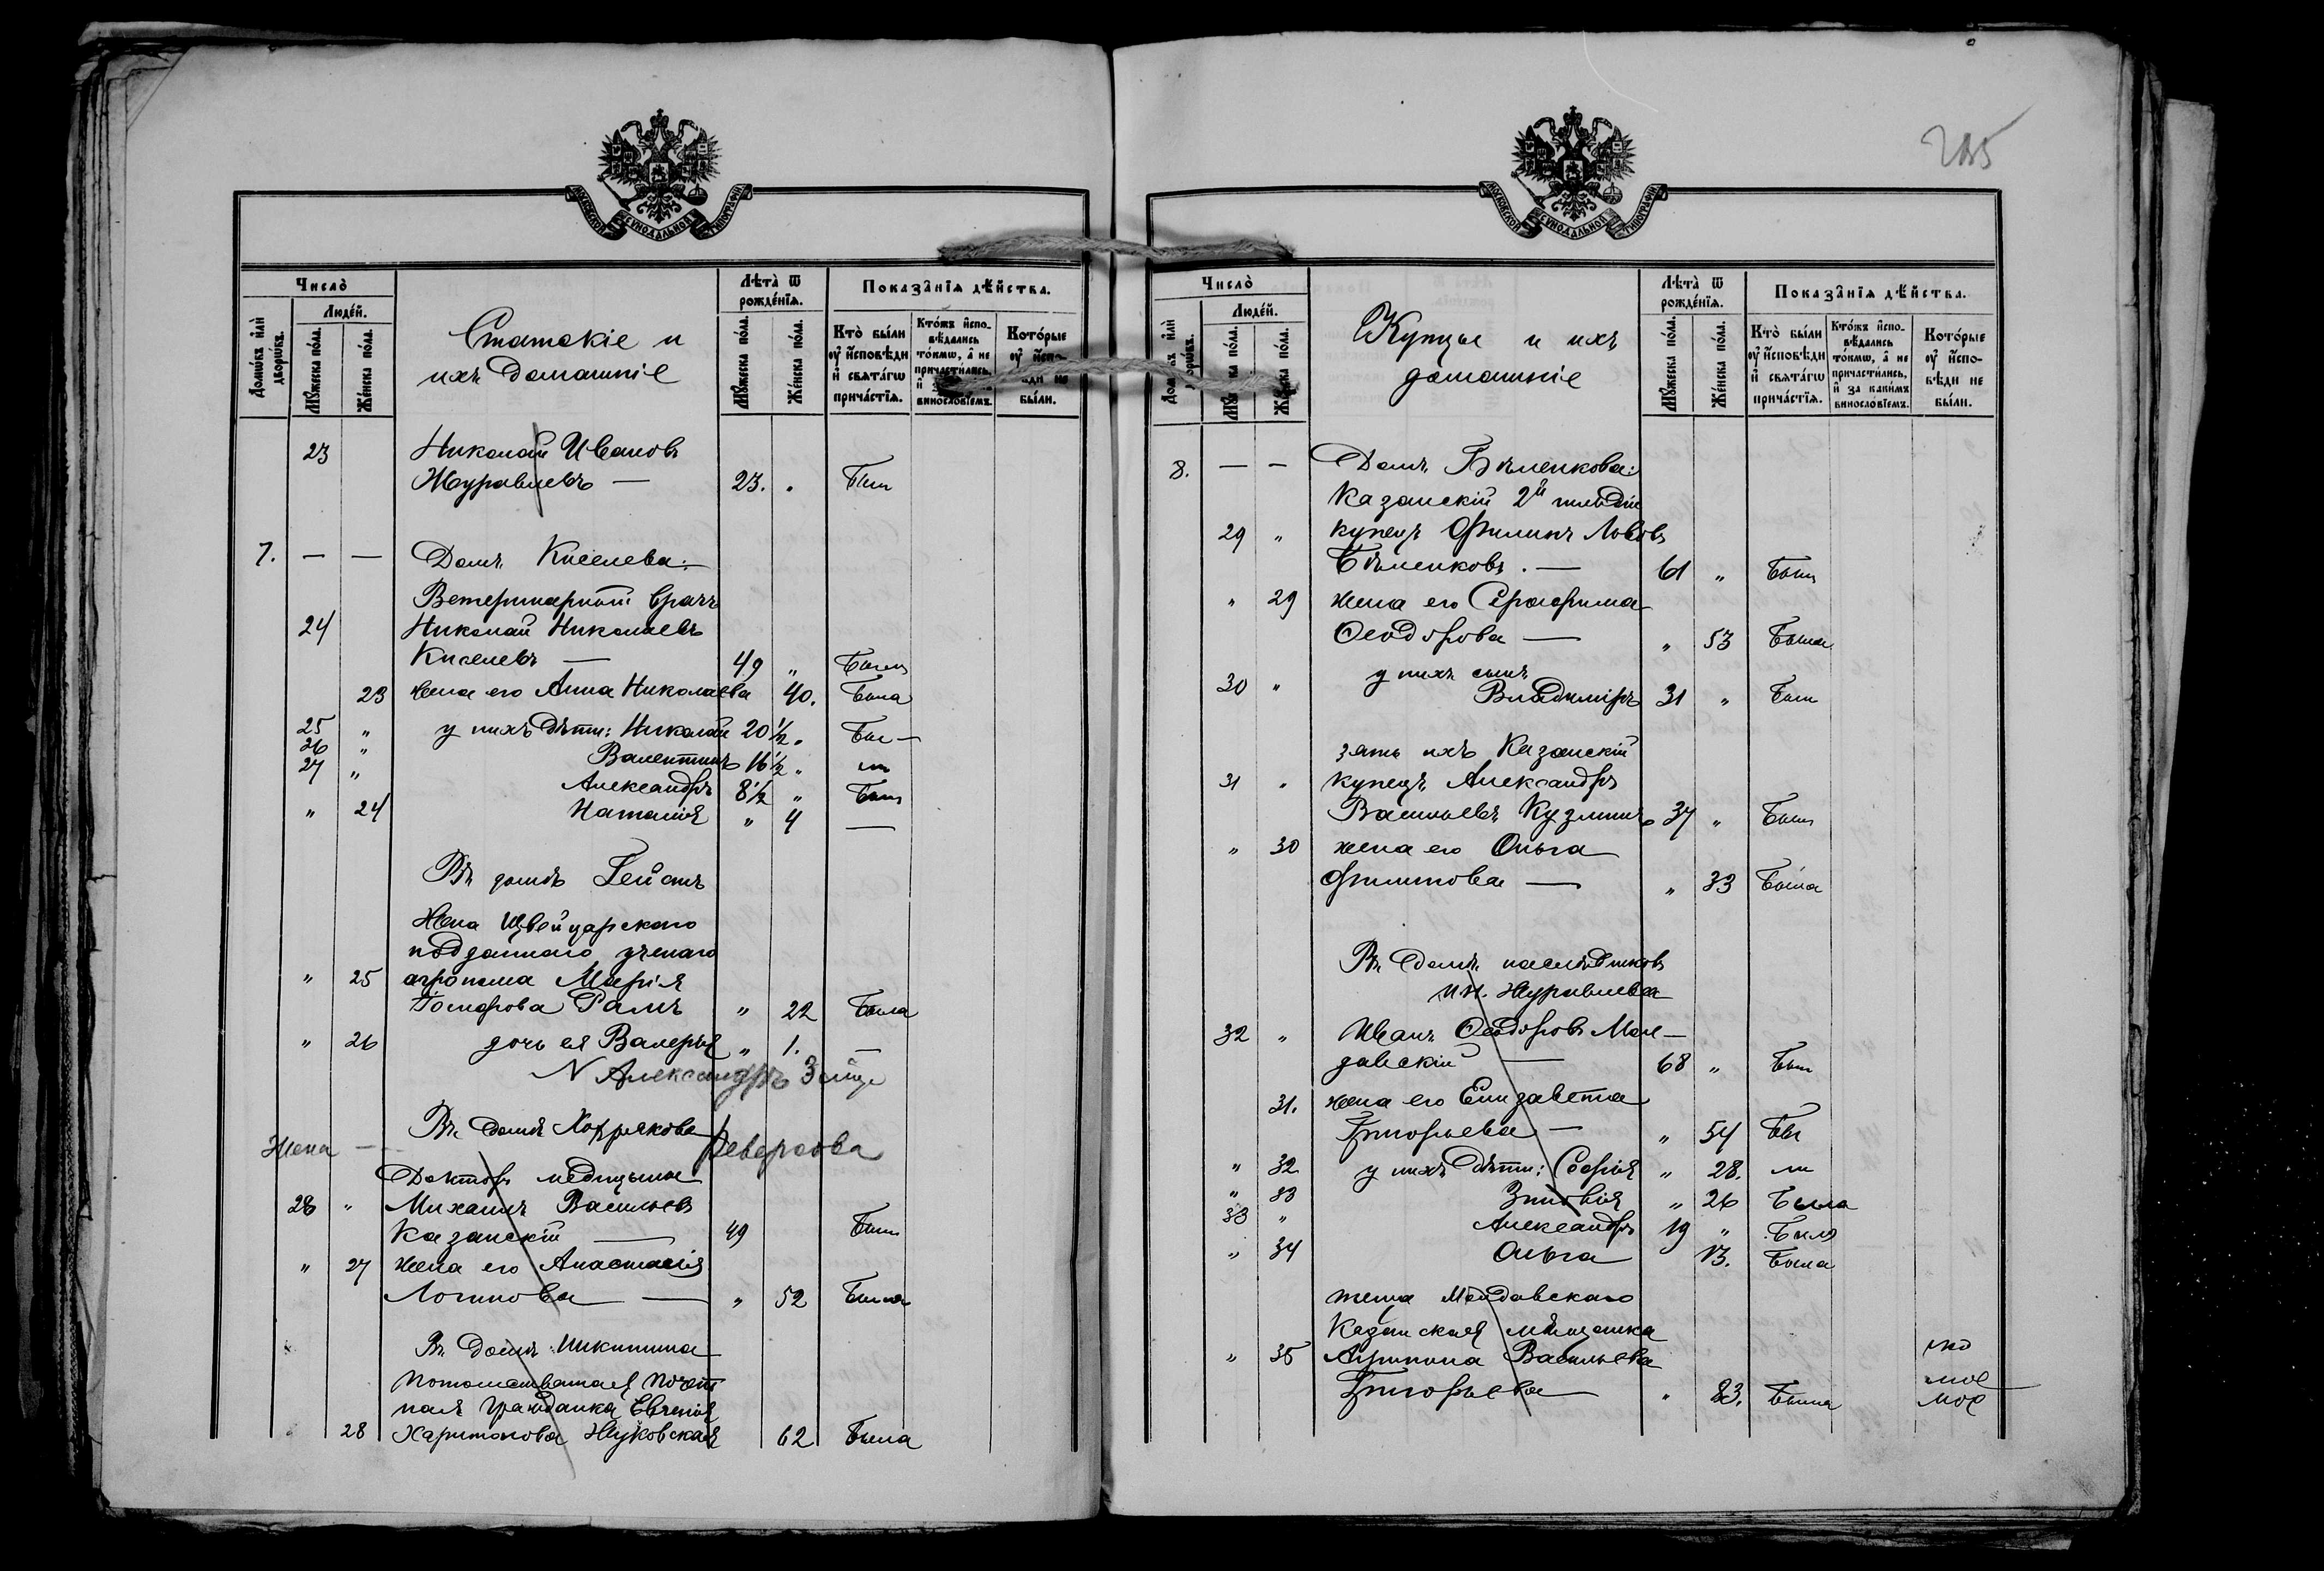 МОСКОВСКОЙ СѴНОДАЛЬНОЙ ТИПОГРАФІИ
Число̀
Домѡ́въ и҆лѝ дворѡ́въ.
Люде́й.
Мꙋ́жеска по́ла.
Же́нска по́ла.
Статскіе и
ихъ домашніе
Лѣта̀ ѿ рожде́нїѧ.
Мꙋ́жеска по́ла.
Же́нска по́ла.
Показа̑нїѧ дѣ́йства.
Кто̀ бы́ли оу҆ и҆сповѣ́ди и҆ свѧта́гѡ прича́стїѧ.
Кто́жъ и҆спо-вѣ́дались то́кмѡ, а҆ не причасти́лись, и҆ винослові́емъ.
Кото́рые оу҆ и҆спо- ди не бы́ли.
23 Николай Ивановъ
Журавлевъ — 23. „ Был
7. — — Домъ Киселева:—
Ветеринарный врачъ
24 Николай Николаевъ
Киселевъ — 49 „ Былъ
23 жена его Анна Николаева 40. Была
25 „ у нихъ дѣти: Николай 20½ „ Бы—
26 „ Валентинъ 16½ „ ли
27 „ Александръ 8½ „ Былъ
„ 24 Наталія „ 4 —
Въ домѣ Гейстъ
Жена Швейцарскаго
подданнаго ученаго
„ 25 агронома Марія
Рамъ „ 22 Была
„ 26 дочь ея Валерія „ 1. —
N Александръ
Въ домѣ Хохрякова
Жена —
Докторъ медицины
28 „ Михаилъ Васильевъ
Казанскій — 49 Былъ
„ 27 жена его Анастасія
Логинова — „ 52 Была
Въ домѣ Никитина
Потомственная Почет
ная гражданка Евгенія
28 Харитонова Жуковская 62 Была
МОСКОВСКОЙ СѴНОДАЛЬНОЙ ТИПОГРАФІИ
Число̀
Люде́й.
Же́нска по́ла.
Купцы и ихъ
домашніе
Лѣта̀ ѿ рожде́нїѧ.
Мꙋ́жеска по́ла.
Же́нска по́ла.
Показа̑нїѧ дѣ́йства.
Кто̀ бы́ли оу҆ и҆сповѣ́ди и҆ свѧта́гѡ прича́стїѧ.
Кто́жъ и҆спо-вѣ́дались то́кмѡ, а҆ не причасти́лись, и҆ за каки́мъ винослові́емъ.
Кото́рые оу҆ и҆спо-вѣ́ди не бы́ли.
8. — — Домъ Бѣленкова:
Казанскій 2й гильдіи
29 „ купецъ Филипъ Львовъ
Бѣленковъ. — 61 „ Былъ
„ 29 жена его Серафима
Ѳеодорова — „ 53 Была
у нихъ сынъ
30 „ Владиміръ 31 „ Был
зять ихъ Казанскій
31 „ купецъ Александръ
Васильевъ Кузминъ 37 „ Былъ
„ 30 жена его Ольга
Филиппова — „ 33 Была
Въ домѣ наслѣдниковъ
Журавлева
32 „ Иванъ Ѳеодоровъ Мол—
давскій — 68 „ Был
31. жена его Елизавета
Григорьева — „ 54 Бы
„ 32 у нихъ дѣти: Софія „ 28. ли
„ 33 Зиновія „ 26 Была
33 „ Александръ 19 „ Былъ
„ 34 Ольга 13. Была
теща Молдавскаго
Казанская мѣщанка
„ 35 Агрипина Васильева
Григорьева — „ 83. Была